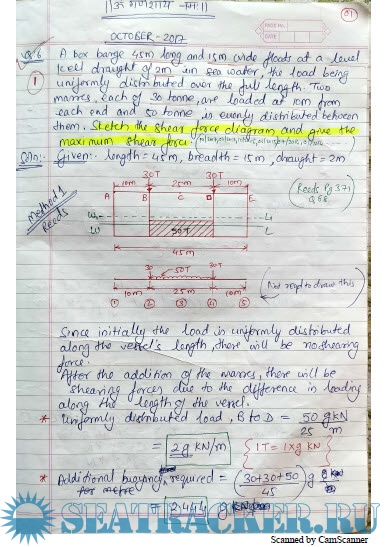 || ॐ गणेशाय नमः ||
01
PAGE No.
DATE
OCTOBER - 2017
Q.6 A box barge 45m long and 15m wide floats at a level
① keel draught of 2m in sea water, the load being
uniformly distributed over the full length. Two
masses, each of 30 tonne, are loaded at 10m from
each end and 50 tonne is evenly distributed between
them. Sketch the shear force diagram and give the
maximum shear force.
Soln:- Given: length = 45m, breadth = 15m, draught = 2m
Method 1
Reeds
30T 30T
10m 25m 10m
A B C D E
(Reeds Pg 371
Q 68)
W1 L1
W L
50T
45m
30 50T 30
10m 25m 10m
① ② ③ ④ ⑤
(Not reqd to draw this)
Since initially the load is uniformly distributed
along the vessel's length, there will be no shearing
force.
After the addition of the masses, there will be
shearing forces due to the difference in loading
along the length of the vessel.
* Uniformly distributed load, B to D = 50g KN
25 m
= 2g KN/m { 1T = 1xg KN
* Additional buoyancy required = (30+30+50) g
for metre 45
= 2.444 g
SEATRACKER.RU
Scanned by CamScanner